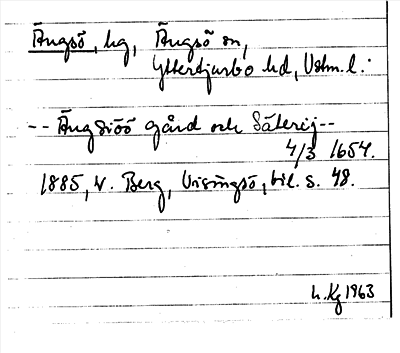 Ängsö, hg, Ängsö sn,
Yttertjurbo hd, Vstm. l.
-- Ängsiöö gård och Säterij --
4/3 1654.
1885, W. Berg, Visingsö, bil. s. 48.
L. Kg 1963